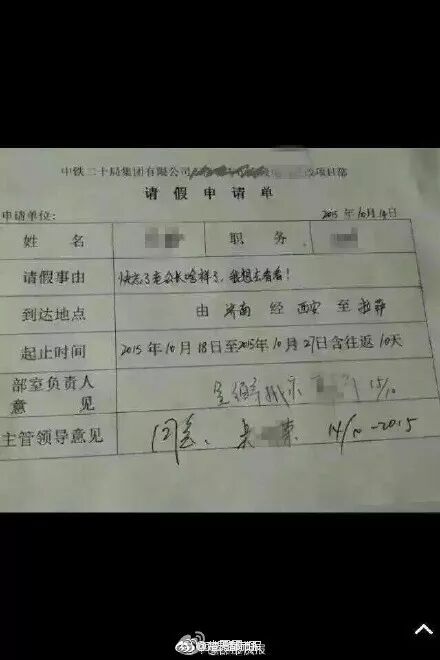 中铁二十局集团有限公司 改项目部
请假申请单
申请单位: 2015年10月14日
姓名 职务
请假事由 快忘了老公长啥样了,我想去看看!
到达地点 由 济南 经 西安 至 拉萨
起止时间 2015年10月18日至2015年10月27日含往返10天
部室负责人意见 15/10
主管领导意见 同意. 14/10-2015